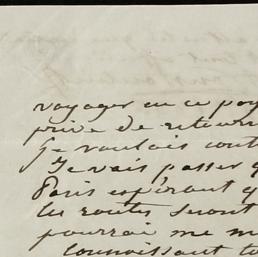 voyager en ce pay
privé de retourn
Je voulais cont
Je vais passer q
Paris espérant q
les routes seront
pourrai me m
connoissant to